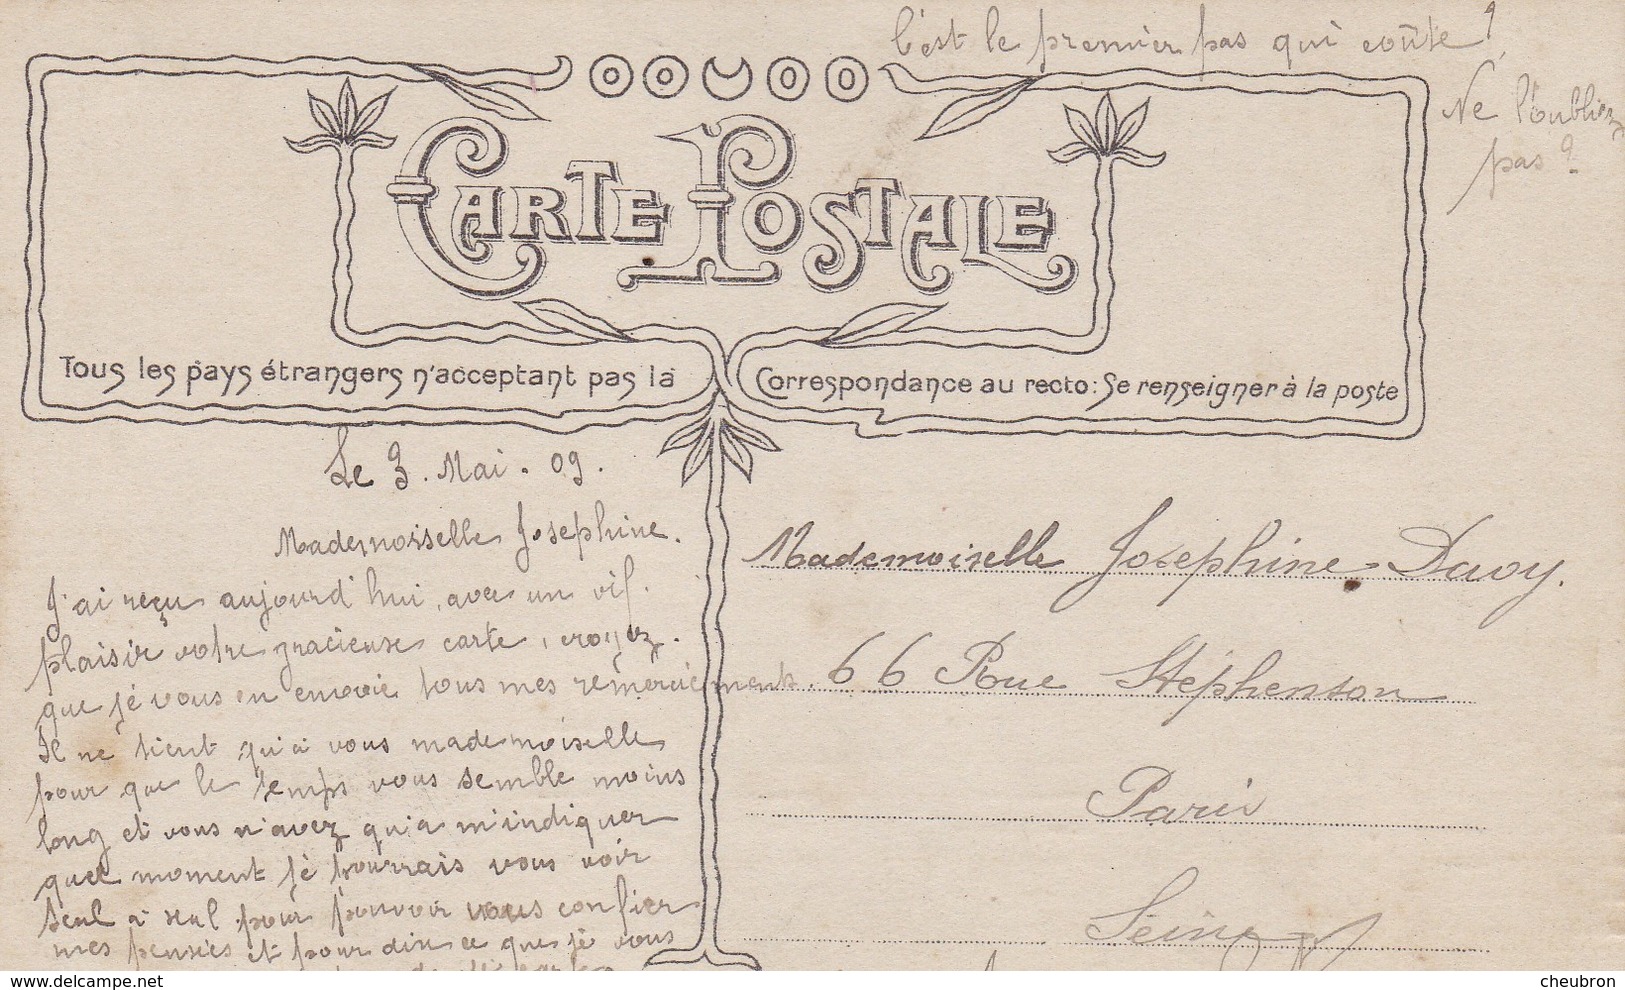 C'est le premier pas qui coûte !
Ne l'oubliez
pas ?
CARTE POSTALE
Tous les pays étrangers n'acceptant pas la Correspondance au recto: Se renseigner à la poste
Le 3. Mai. 09.
Mademoisselle Josephine.
J'ai reçu aujourd'hui, avec un vif.
plaisir votre gracieuse carte, croyez.
que jé vous en envoie tous mes remerciements.
Il ne tient qu'à vous mademoiselle
pour que le temps vous semble moins
long et vous n'avez qu'a m'indiquer
quel moment jé pourrais vous voir
seul à seul pour pouvoir vous confier
mes pensées et pour dire ce que jé vous
Mademoiselle Josephine Davy.
66 Rue Stéphenson
Paris
Seine
delcampe.net
cheubron